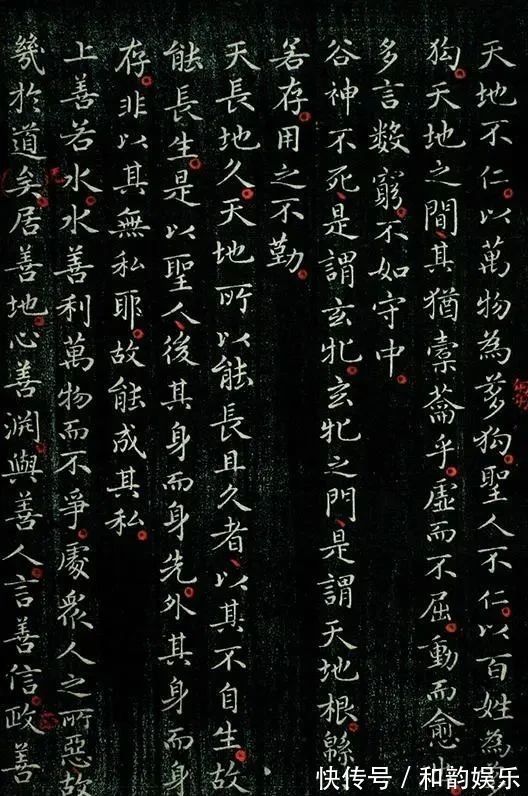 天地不仁以萬物為芻狗聖人不仁以百姓為芻
狗天地之間其猶橐籥乎虛而不屈動而愈出
多言數窮不如守中
谷神不死是謂玄牝玄牝之門是謂天地根緜
若存用之不勤
天長地久天地所以能長且久者以其不自生故
能長生是以聖人後其身而身先外其身而身
存非以其無私耶故能成其私
上善若水水善利萬物而不爭處眾人之所惡故
幾於道矣居善地心善淵與善人言善信政善
快传号 / 和韵娱乐